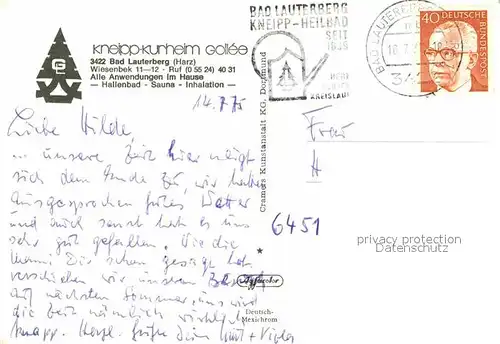 kneipp-kurheim gollée
3422 Bad Lauterberg (Harz)
Wiesenbek 11–12 · Ruf (0 55 24) 40 31
Alle Anwendungen im Hause
— Hallenbad - Sauna - Inhalation —
BAD LAUTERBERG
KNEIPP-HEILBAD
SEIT
KREISLAUF
BAD LAUTERBERG
40 DEUTSCHE
BUNDESPOST
14.7.75
Liebe Hilde,
... unsere Zeit hier neigt
sich dem Ende zu, wir hatten
ausgesprochen gutes Wetter
und auch sonst hat es uns
sehr gut gefallen. Wie die
Mami Dir schon gesagt hat,
verschieben wir unseren Besuch
auf nächsten Sommer, uns wird
die Zeit nämlich wirklich
knapp. Herzl. Grüße Dein
Cramers Kunstanstalt KG, Dortmund
Frau
H
6451
privacy protection
Datenschutz
Deutsch-
Mexichrom